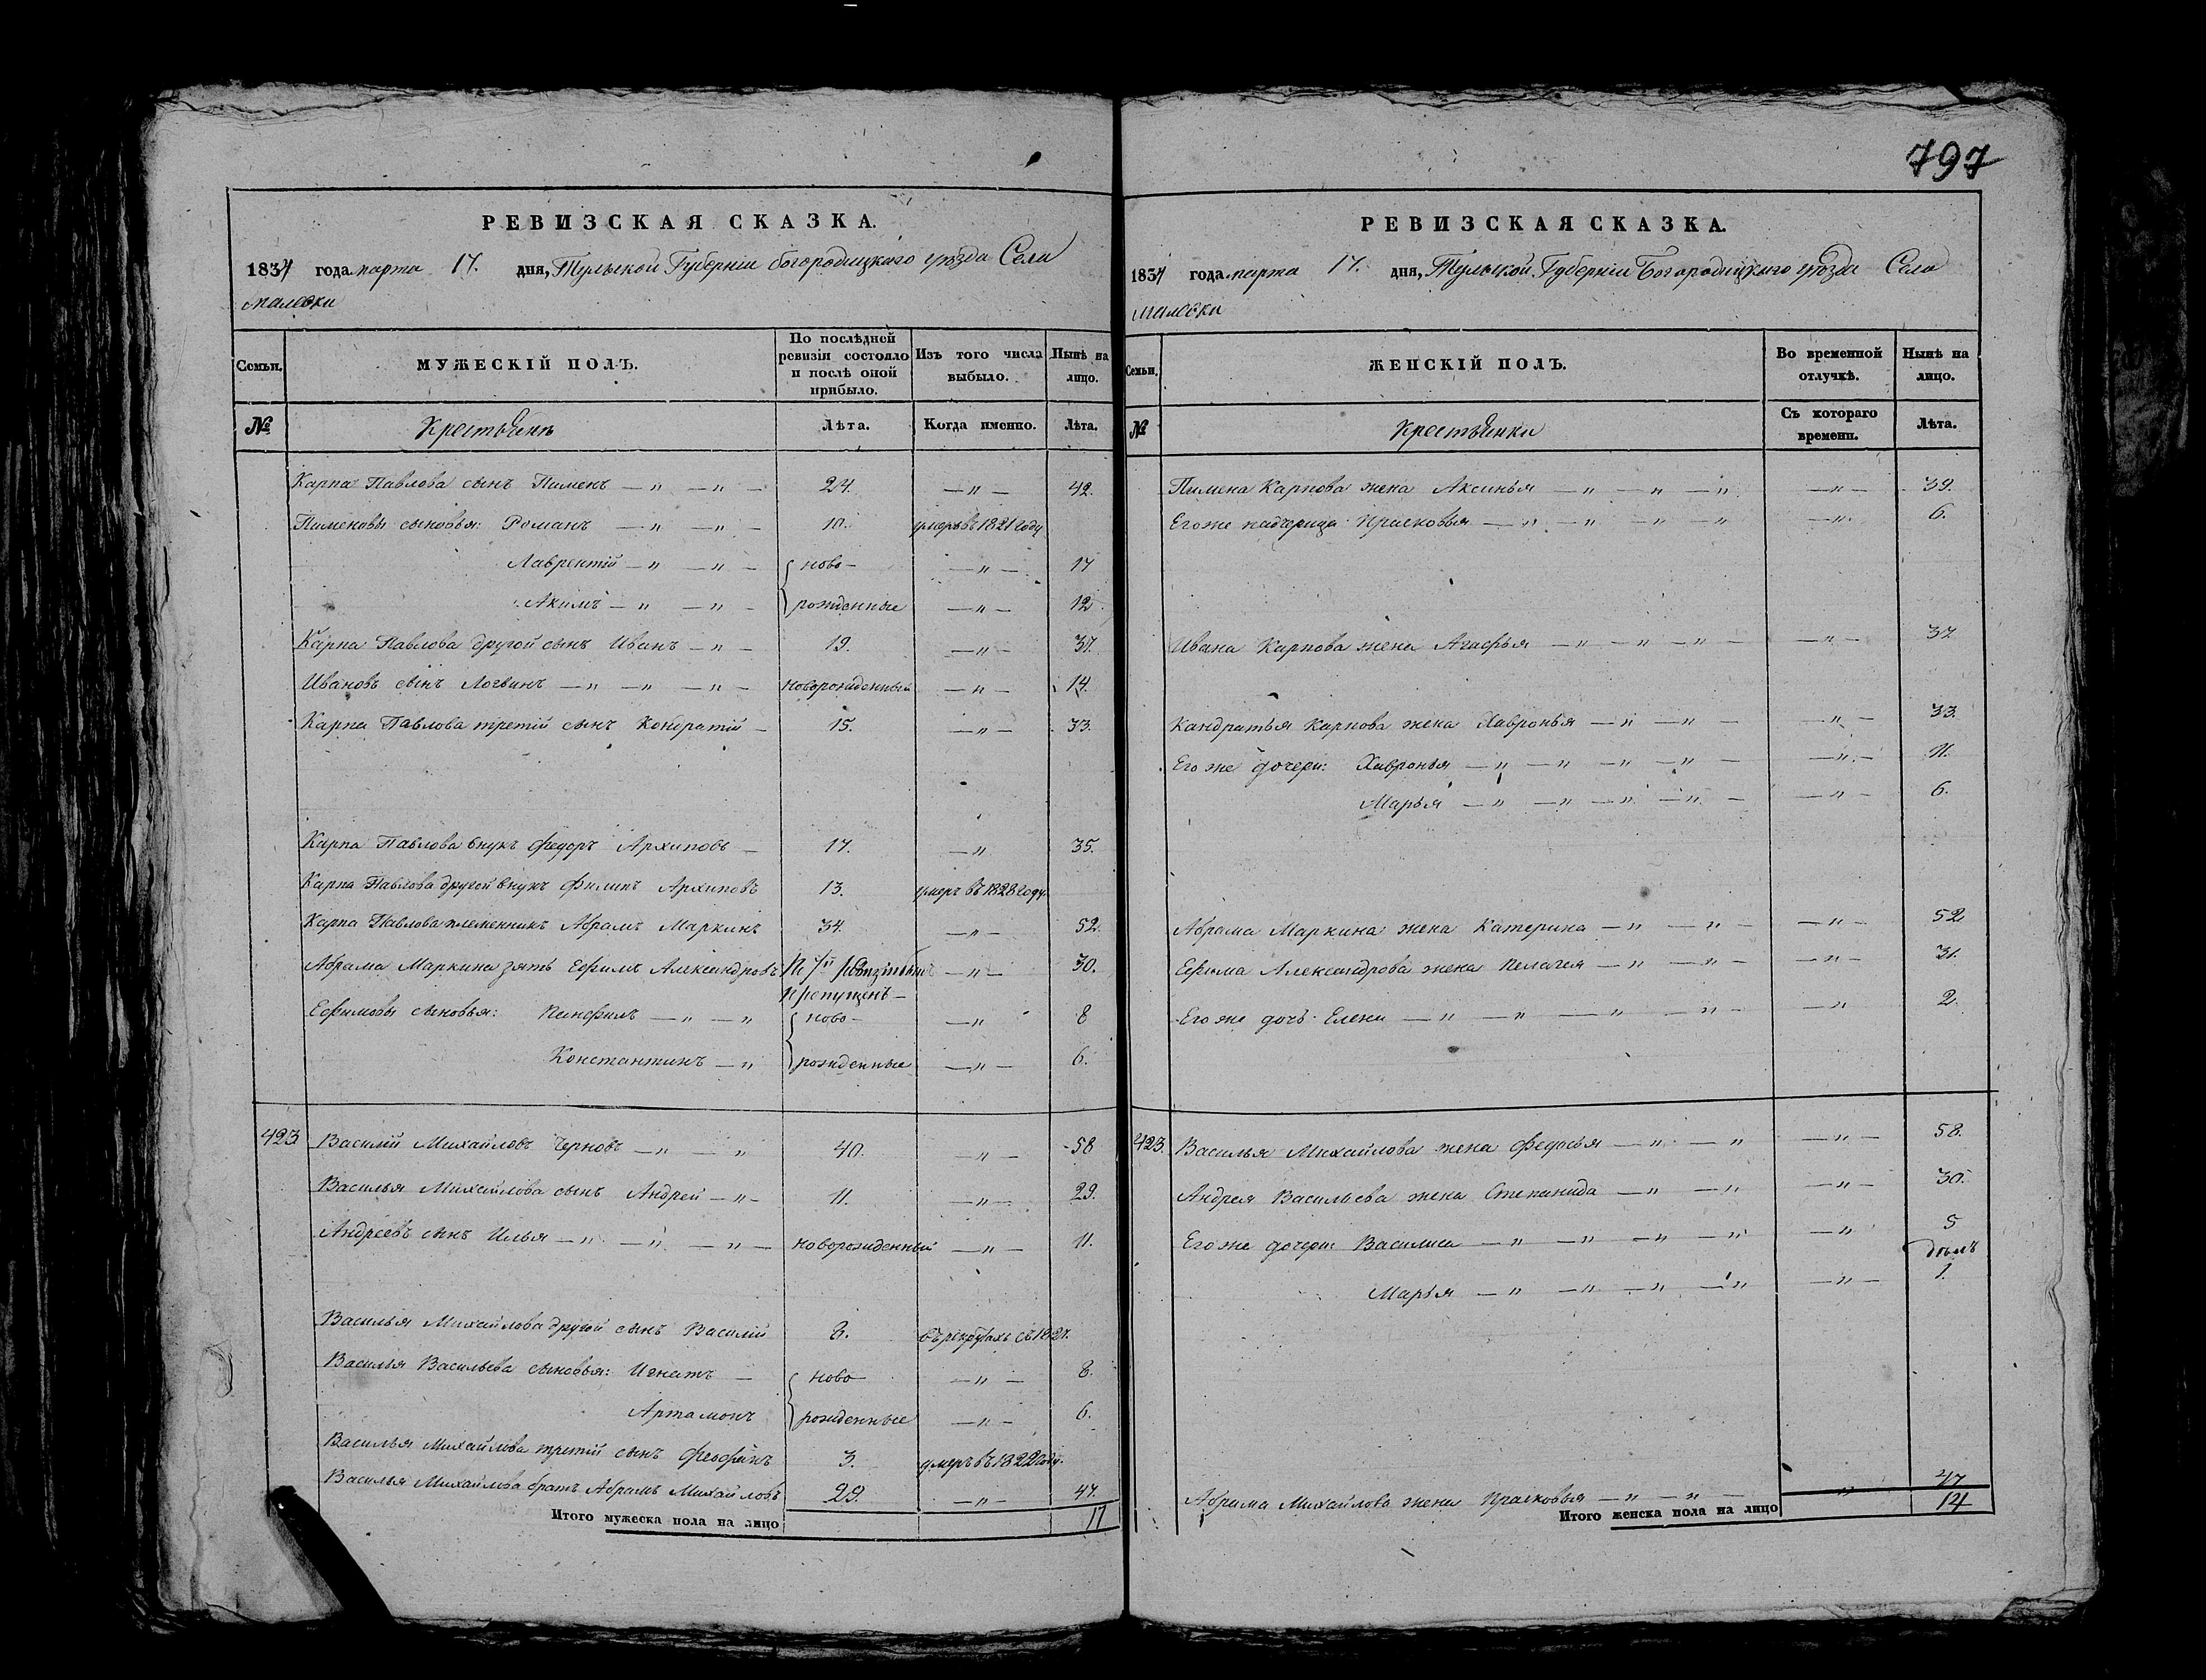 797
РЕВИЗСКАЯ СКАЗКА.
1834 года марта 17. дня, Тульской Губерніи богородицкаго уѣзда Села
малевки
Семьи. МУЖЕСКІЙ ПОЛЪ. По послѣдней ревизіи состояло и послѣ оной прибыло. Изъ того числа выбыло. Нынѣ на лицо.
№ Крестьянъ Лѣта. Когда именно. Лѣта.
Карпа Павлова сынъ Пименъ — „ — „ — 24. — „ — 42.
Пименовы сыновья: Романъ — „ — „ — 10. умеръ въ 1821 году
Лаврентій — „ — „ — ново- — „ — 17
Акимъ — „ — „ — рожденные — „ — 12
Карпа Павлова другой сынъ Иванъ — „ — 19. — „ — 37.
Ивановъ сынъ Логвинъ — „ — „ — „ — новорожденный — „ — 14.
Карпа Павлова третій сынъ Кондратій — 15. — „ — 33.
Карпа Павлова внукъ Федоръ Архиповъ — 17. — „ 35.
Карпа Павлова другой внукъ Филипъ Архиповъ 13. умеръ въ 1828 году.
Карпа Павлова племенникъ Абрамъ Маркинъ 34. — „ — 52.
Абрама Маркина зять Ефимъ Александровъ — „ — 30.
пропущенъ —
Ефимовы сыновья: Панфилъ — „ — „ ново- — „ 8
Константинъ — „ рожденные — „ — 6.
423 Василій Михайловъ Черновъ — „ — „ 40. — „ — 58
Василья Михайлова сынъ Андрей — „ — 11. — „ — 29.
Андреевъ сынъ Илья — „ — „ — „ — новорожденный — „ — 11.
Василья Михайлова другой сынъ Василій 8. въ рекрутахъ съ 1827.
Василья Васильева сыновья: Игнатъ — ново- — „ — 8.
Артамонъ рожденные — „ — 6.
Василья Михайлова третій сынъ Феофанъ 3. умеръ въ 1822 году.
Василья Михайлова братъ Абрамъ Михайловъ 29. — „ — 47.
Итого мужеска пола на лицо 17
РЕВИЗСКАЯ СКАЗКА.
1834 года марта 17. дня, Тульской Губерніи Богородицкаго уѣзда Села
малевки
Семьи. ЖЕНСКІЙ ПОЛЪ. Во временной отлучкѣ. Нынѣ на лицо.
№ Крестьянки Съ котораго времени. Лѣта.
Пимена Карпова жена Аксинья — „ — „ — „ — „ — 39.
Его же падчерица Прасковья — „ — „ — „ — „ — „ 6.
Ивана Карпова жена Агафья — „ — „ — „ — — „ — 37.
Кандратья Карпова жена Хавронья — „ — „ — — „ — 33.
Его же дочери: Хавронья — „ — „ — „ — „ — — „ — 11.
Марья — „ — „ — „ — „ — — „ — 6.
Абрама Маркина жена Катерина — „ — „ — — „ — 52
Ефима Александрова жена Пелагея — „ — „ — — „ — 31.
Его же дочь Елена — „ — „ — „ — „ — — „ 2.
423. Василья Михайлова жена Федосья — „ — „ — „ — 58.
Андрея Васильева жена Степанида — „ — „ — „ — 30.
Его же дочери: Василиса — „ — „ — „ — „ — „ 5
Марья — „ — „ — „ — „ — „ — 1.
Абрама Михайлова жена Прасковья — „ — „ — „ 47
Итого женска пола на лицо 14